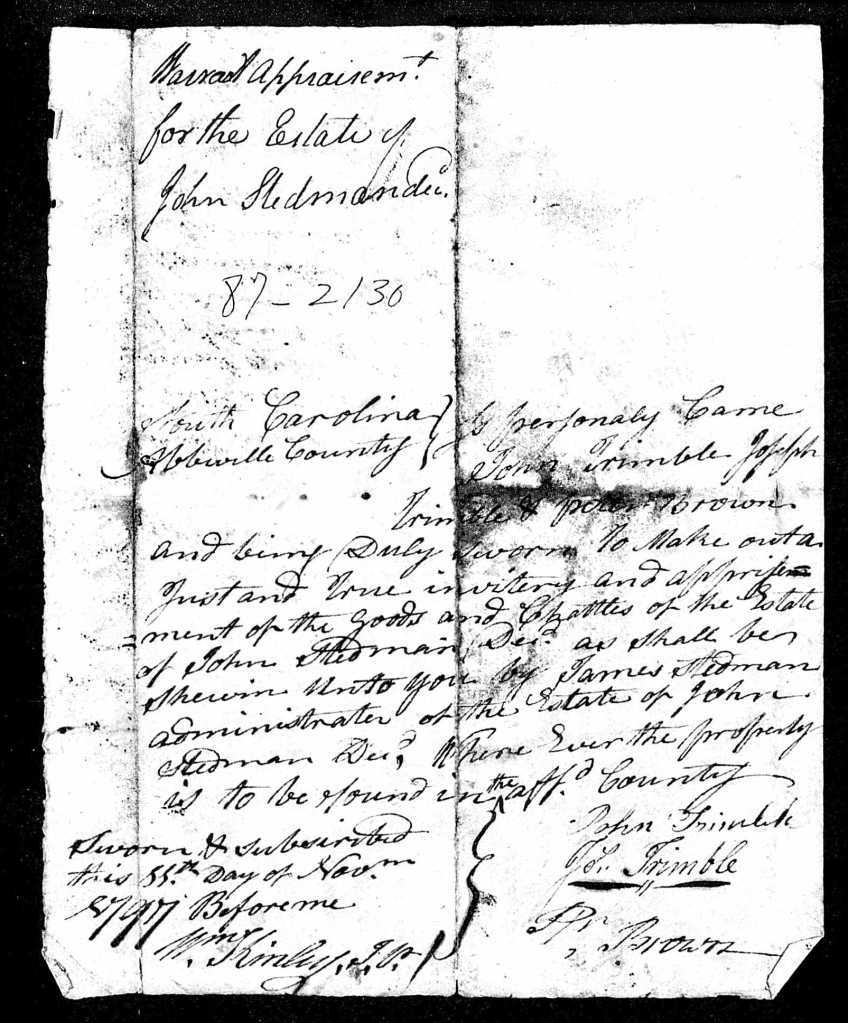 Warrant Appraisemt
for the Estate of
John Stedman decd.
87-2130
South Carolina } personaly Came
Abbeville County } John Trimble Joseph
Trimble & Peter Brown
and being Duly Sworn To Make out a
Just and True invitery and apprise=
=ment of the Goods and Chattles of the Estate
of John Stedman Decd. as shall be
shewin Unto you by James Stedman
administrater of the Estate of John
Stedman Decd. Where Ever the property
is to be found in the affd. County
Sworn & subscribed
this Day of Novm
1797 Before me
Wm Kinley, J.P.
John Trimble
Jos. Trimble
Brown